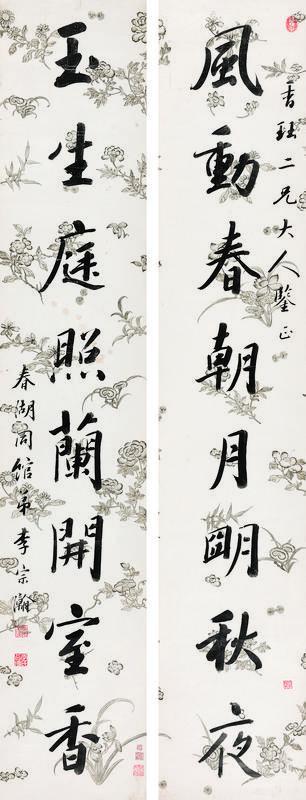 香珏二兄大人鑒正
風動春朝月明秋夜
玉生庭照蘭開室香
春湖同館弟李宗瀚